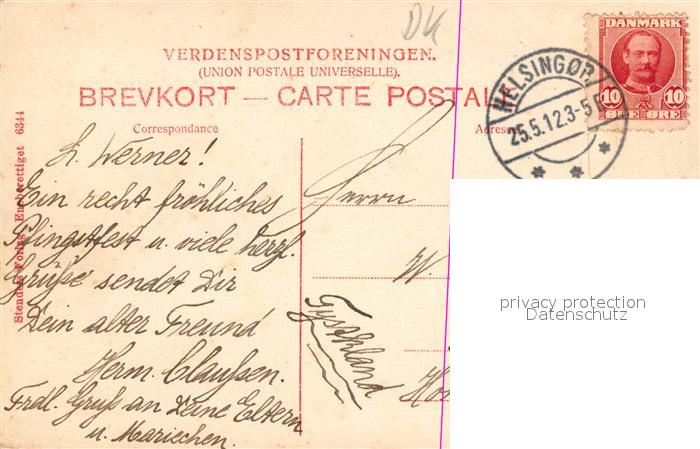 DK
VERDENSPOSTFORENINGEN.
(UNION POSTALE UNIVERSELLE).
BREVKORT — CARTE POSTALE
Correspondance
Adresse
DANMARK
10 10
ØRE ØRE
HELSINGØR
25.5.12.3-5 E
Stenders Forlag Eneberettiget 6344
L. Werner!
Ein recht fröhliches
Pfingstfest u. viele herzl.
Grüße sendet Dir
Dein alter Freund
Herm. Claußen.
Frdl. Gruß an Deine Eltern
u. Mariechen.
Herrn
W.
Tyskland
privacy protection
Datenschutz